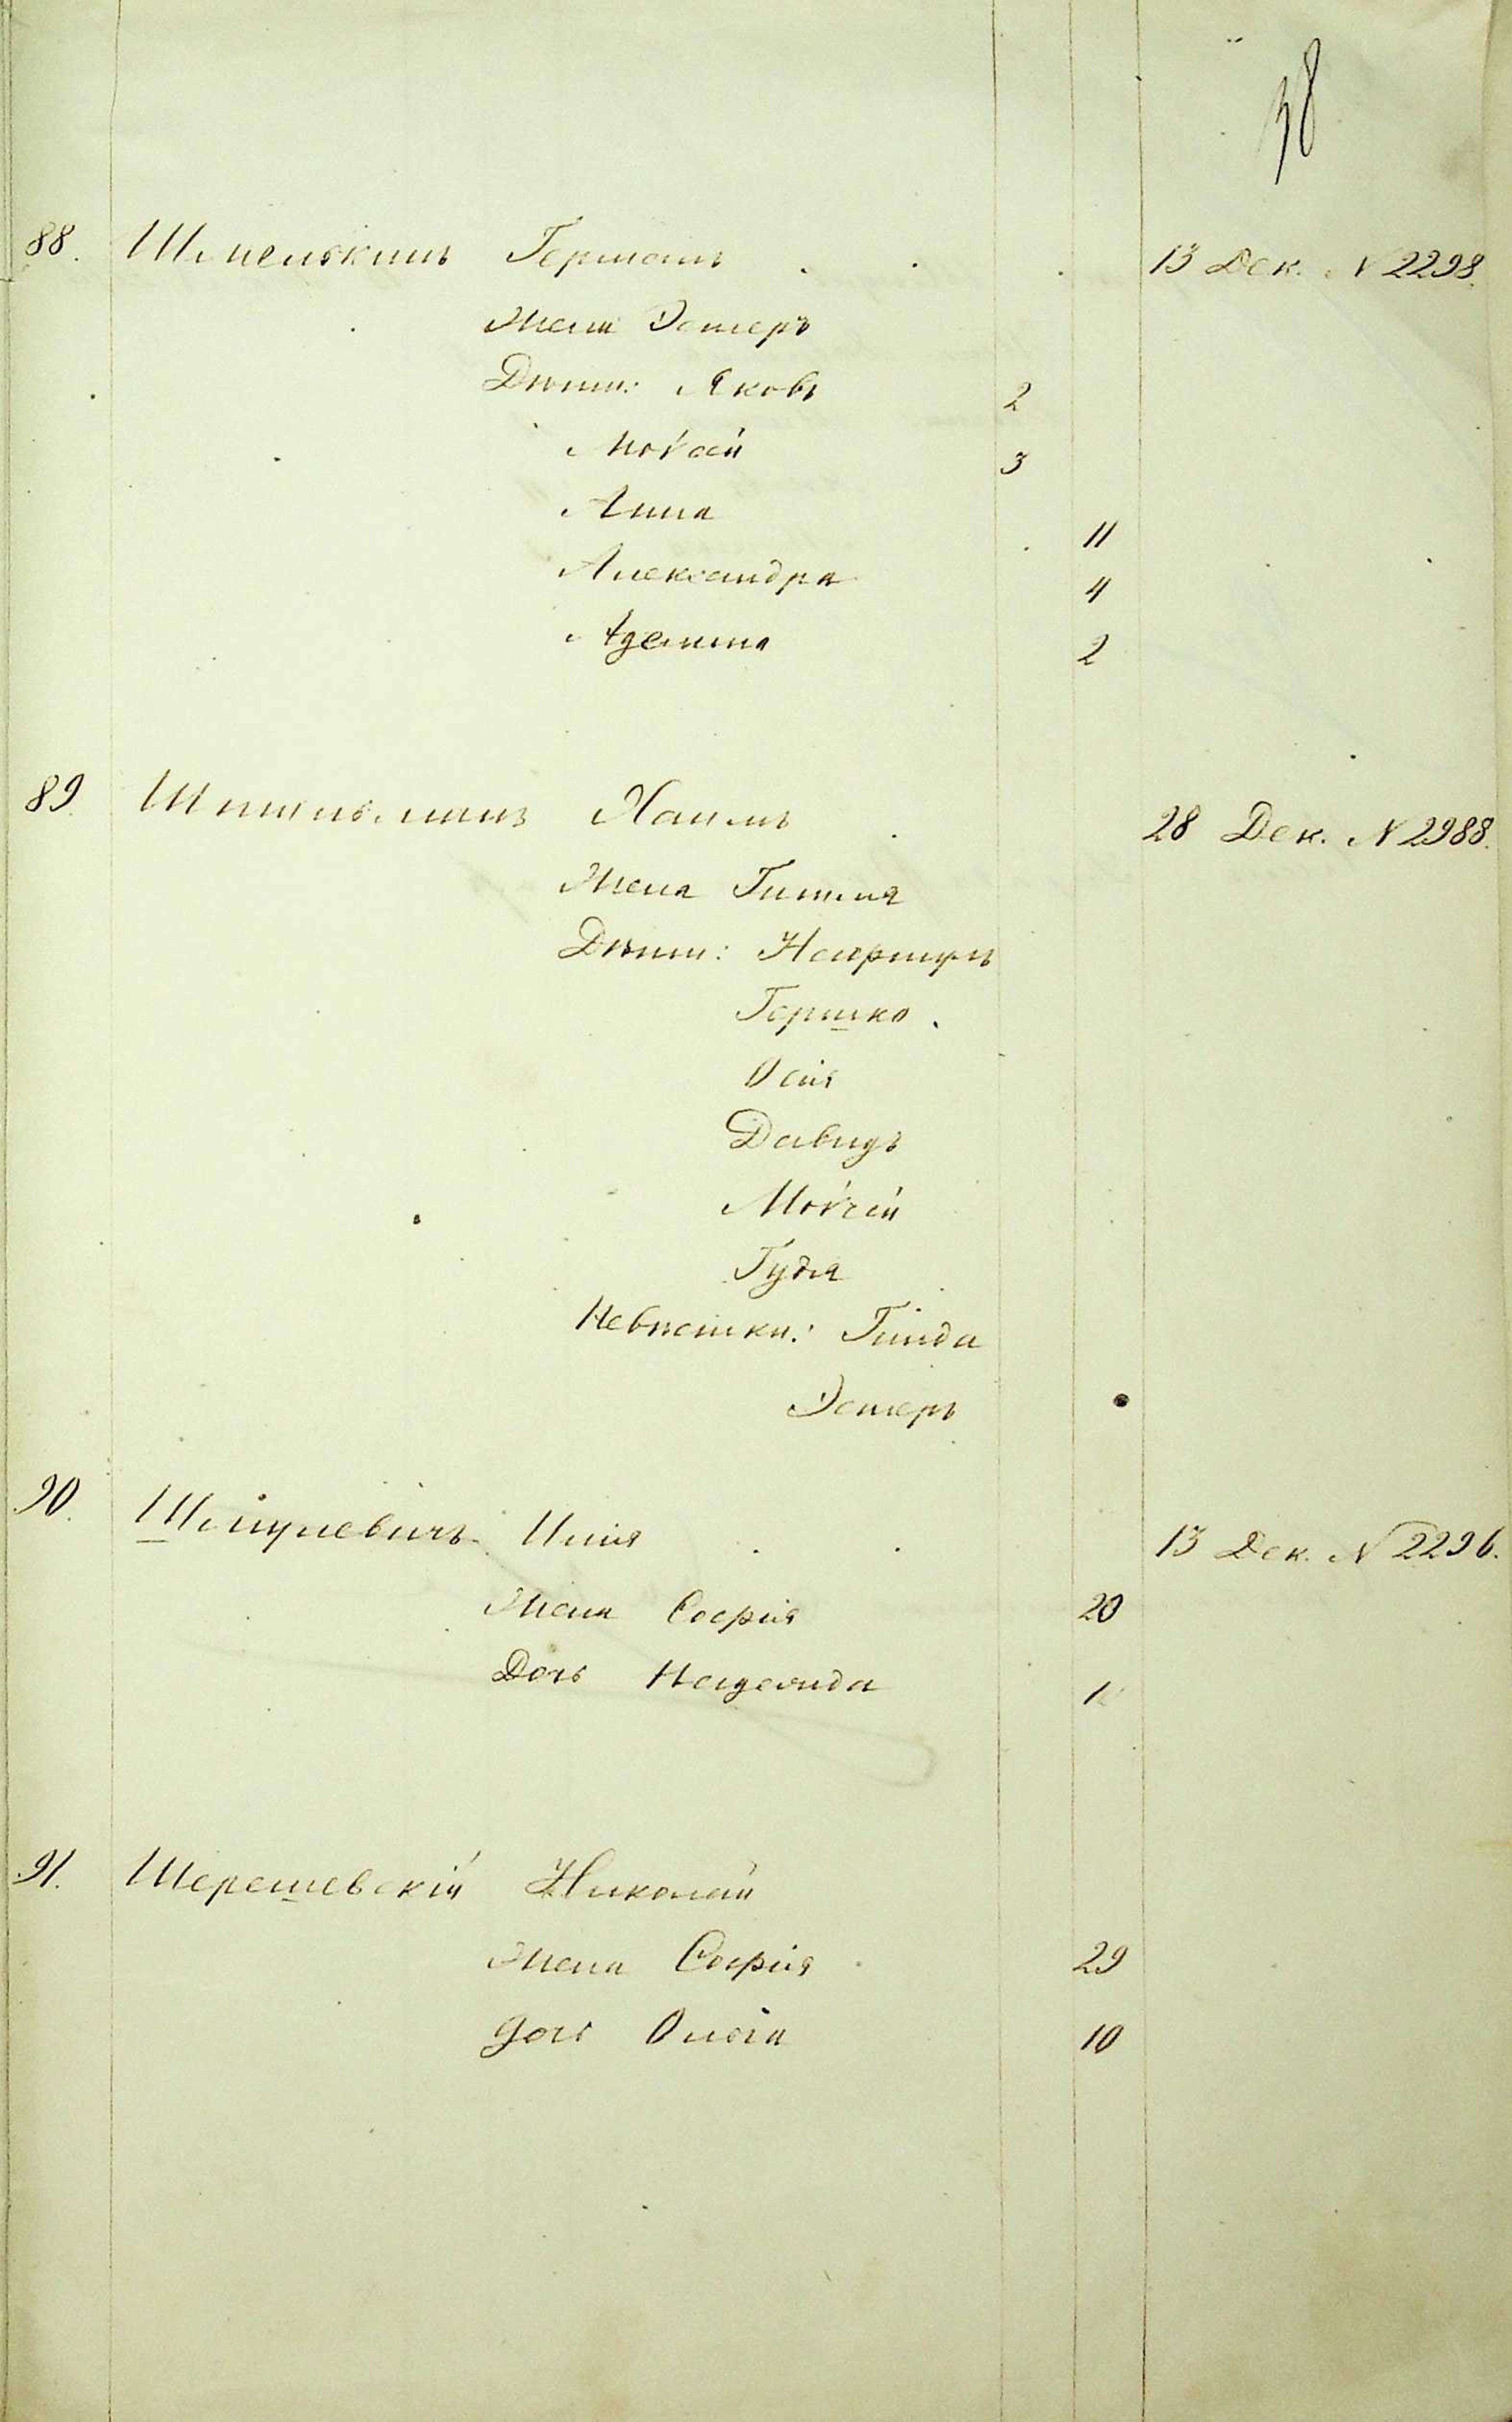 38
88. Шмелькинъ Германъ 13 Дек. N 2298.
Жена Эстеръ
Дѣти: Яковъ 2
Мойсей 3
Анна 11
Александра 4
Аделина 2
89. Шпильманъ Хаимъ 28 Дек. N 2988.
Жена Гитля
Дѣти: Нафтулъ
Гершко
Осія
Давидъ
Мойсей
Гудя
Невѣстки: Гинда
Эстеръ
90. Шмулевичъ Илія 13 Дек. N 2296.
Жена Софія 20
Дочь Надежда 1
91. Шерешевскій Николай
Жена Софія 29
дочь Ольга 10